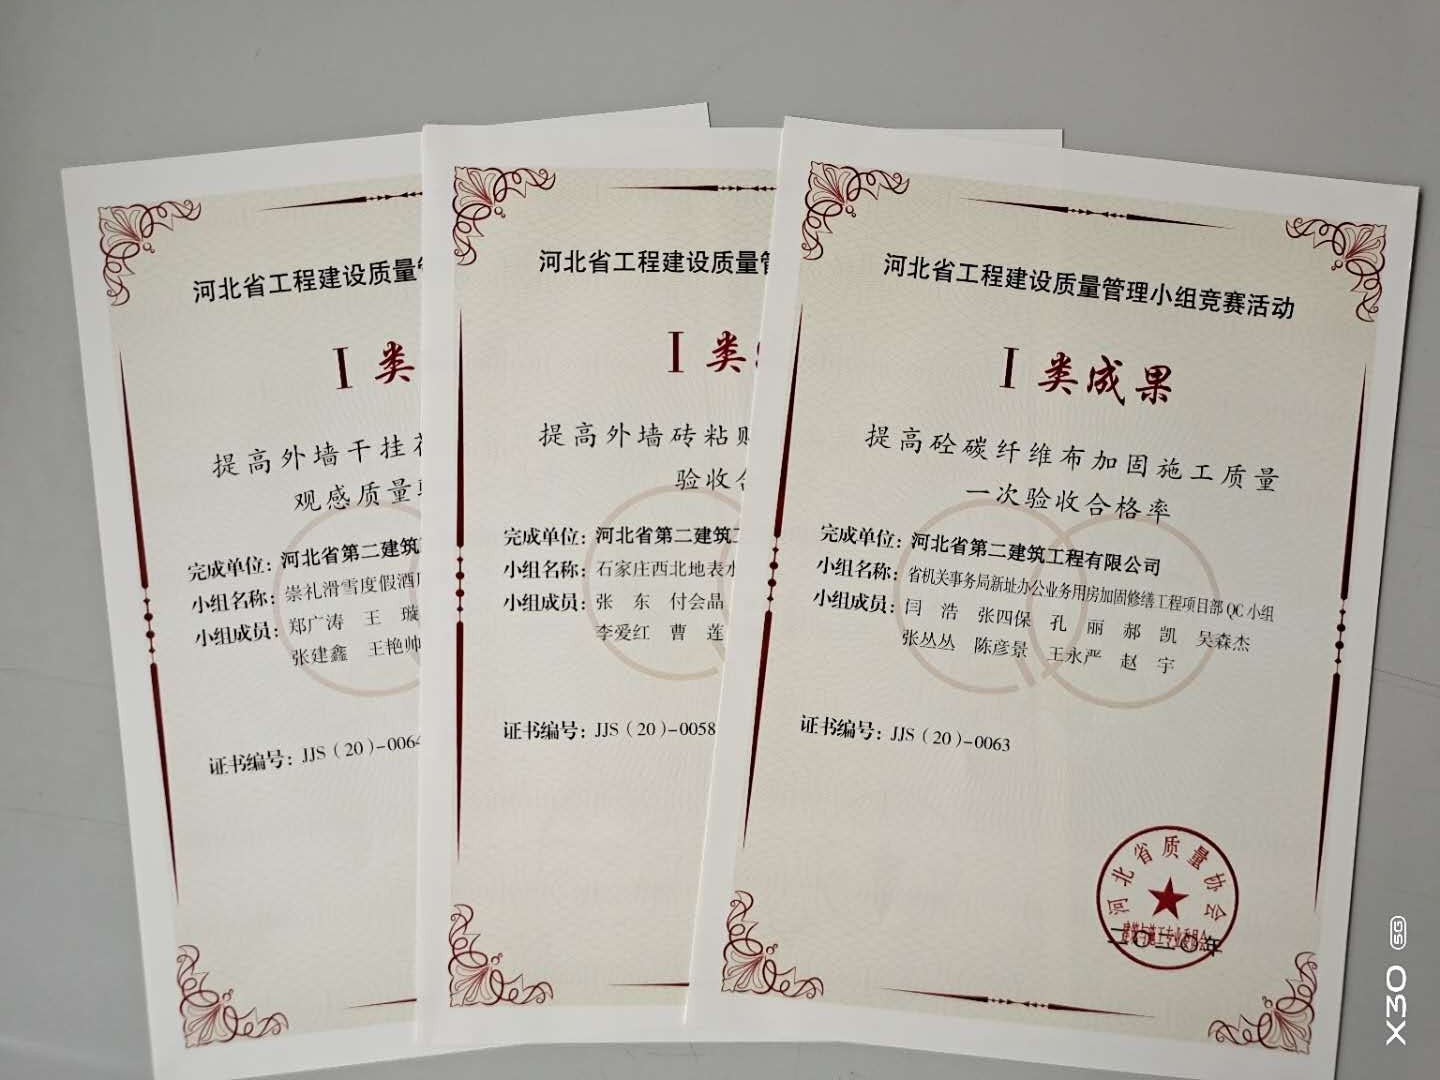 河北省工程建设质量
I 类
提高外墙干挂
观感质量
完成单位：河北省第二建筑
小组名称：崇礼滑雪度假酒
小组成员：郑广涛 王 璇
张建鑫 王艳帅
证书编号：JJS（20）-0064
河北省工程建设质量
I 类
提高外墙砖粘贴
验收合
完成单位：河北省第二建筑
小组名称：石家庄西北地表水
小组成员：张 东 付会晶
李爱红 曹 莲
证书编号：JJS（20）-0058
河北省工程建设质量管理小组竞赛活动
I 类成果
提高砼碳纤维布加固施工质量
一次验收合格率
完成单位：河北省第二建筑工程有限公司
小组名称：省机关事务局新址办公业务用房加固修缮工程项目部QC小组
小组成员：闫 浩 张四保 孔 丽 郝 凯 吴森杰
张丛丛 陈彦景 王永严 赵 宇
证书编号：JJS（20）-0063
河北省质量协会
建筑与施工专业委员会
二〇二〇年
X30 5G